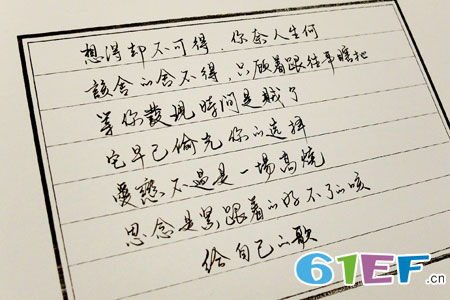 想得却不可得，你奈人生何
該舍的舍不得，只顧着跟往事瞎扯
等你發現時間是賊了
它早已偷光你的选择
爱戀不過是一場高燒
思念是累跟着的好不了的咳
给自己的歌
61EF.cn